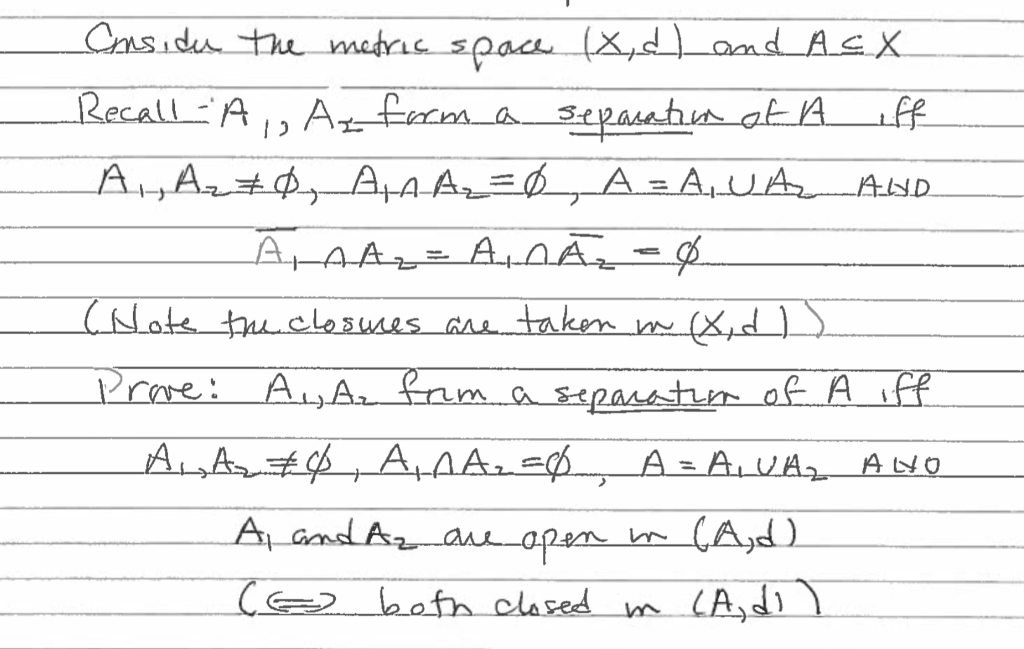 Consider the metric space (X,d) and A ⊆ X
Recall - A₁, A₂ form a separation of A iff
A₁, A₂ ≠ ∅, A₁ ∩ A₂ = ∅, A = A₁ ∪ A₂ AND
A̅₁ ∩ A₂ = A₁ ∩ A̅₂ = ∅
(Note the closures are taken in (X,d))
Prove: A₁, A₂ form a separation of A iff
A₁, A₂ ≠ ∅, A₁ ∩ A₂ = ∅, A = A₁ ∪ A₂ AND
A₁ and A₂ are open in (A,d)
(⟺ both closed in (A,d))